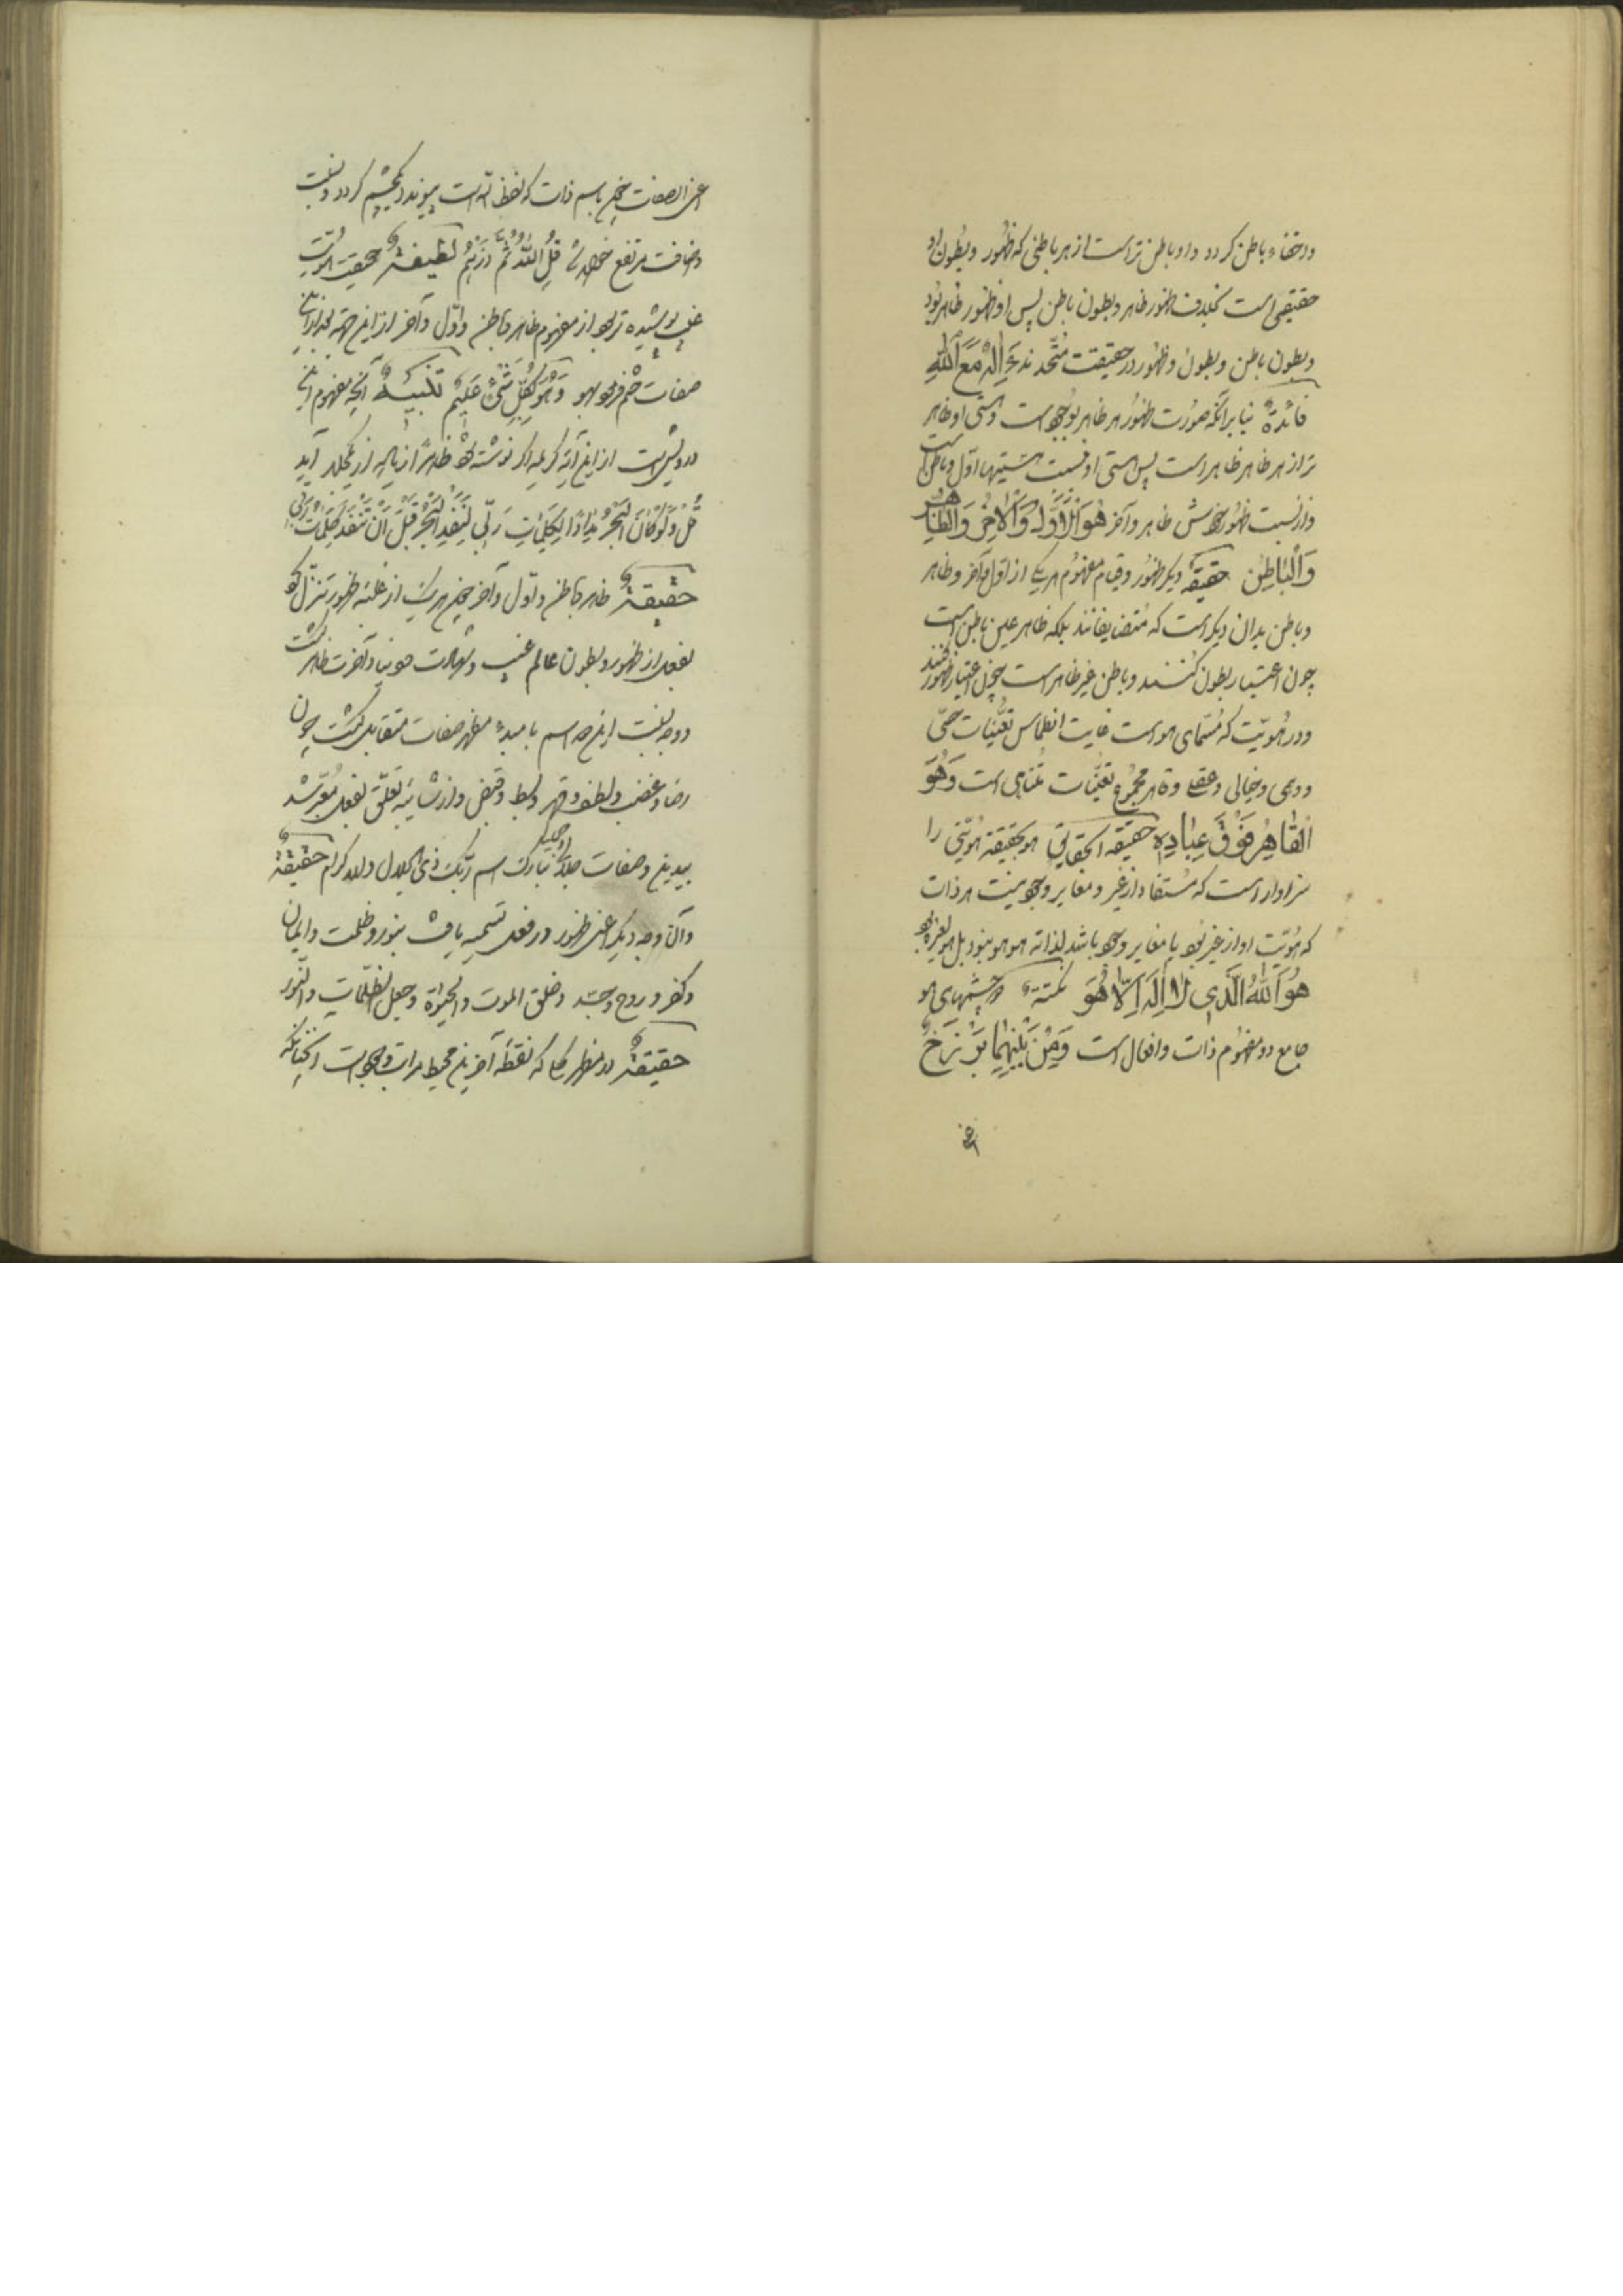 و اختفاء باطن کردد و او باطن تر است از هر باطنی که ظهور و بطون او
حقیقی است بخلاف ظهور ظاهر و بطون باطن پس او ظهور ظاهر بود
و بطون باطن و بطون و ظهور در حقیقت متّحدند ءَاِلهٌ مَعَ اللهِ
فائدة بنابر آنکه صورت ظهور هر ظاهر بوجود است و هستی او ظاهر
تر از هر ظاهر ظاهر است پس هستی او نسبت هستیها اوّل و باطن است
و از نسبت ظهور خودش ظاهر و آخر هُوَ الْاَوَّلُ وَالْاٰخِرُ وَالظَّاهِرُ
وَالْبَاطِنُ حقیقة دیکر ظهور و قیام مفهوم هر یک از اوّل و آخر و ظاهر
و باطن بدان دیکر است که متضایفانند بلکه ظاهر عین باطن است
چون اعتبار بطون کنند و باطن غیر ظاهر است چون اعتبار ظهور کنند
و در هُویّت که مُسمّای هو است غایت انطماس تعیّنات حسّی
و وهمی و خیالی و عقلی و قاهر مجموع تعیّنات متناهی است وَهُوَ
الْقَاهِرُ فَوْقَ عِبَادِهِ حقیقة الحقایق هو بحقیقة هویّتی را
سزاوار است که مُستفاد از غیر و مغایر وجود نیست هر ذات
که هُویّت او از غیر بود یا مغایر وجود باشد لذاته هو هو نبود بل هو لغیره بود
هُوَ اللهُ الَّذِی لَا اِلٰهَ اِلَّا هُوَ نکتة دو چشمهای هو
جامع دو مفهوم ذات و افعال است وَمِنْ بَیْنِهِمَا بَرْزَخٌ
اعنی الصفات چون باسم ذات که لفظ الله است پیوندد یکچشم کردد و نسبت
و اضافت مرتفع خواهد شد قُلِ اللهُ ثُمَّ ذَرْهُمْ لطیفة حقیقت هویّت
غیب پوشیده تر بود از مفهوم ظاهر و باطن و اوّل و آخر از این جهة
صفات ختم فرمود بهو وَهُوَ بِکُلِّ شَیْءٍ عَلِیمٌ تنبیه آنچه مفهوم این
درویش است از این آیه کریمه اکر نوشته شود ظاهراً از ده مجلد آید
قُلْ وَلَوْ کَانَ الْبَحْرُ مِدَادًا لِکَلِمَاتِ رَبِّی لَنَفِدَ الْبَحْرُ قَبْلَ اَنْ تَنْفَدَ کَلِمَاتُ رَبِّی
حقیقة ظاهر و باطن و اوّل و آخر چون هر یک از غلبه ظهور تنزّل کرد
بفعل از ظهور و بطون عالم غیب و شهادت و دنیا و آخرت ظاهر کشت
و وجه نسبت این دو اسم با مبدء مظهر صفات متقابل کشت چون
رضا و غضب و لطف و قهر و بسط و قبض و از شائبه تعلّق بفعل معبّر شد
بیدین و صفات جلال و جمال تبارک اسم ربّک ذی الجلال والاکرام حقیقة
و آن وجه دیکر اعنی ظهور در فعل تسمیه یافت بنور و ظلمت و ایمان
و کفر و روح و جسد و خلق الموت والحیوة و جعل الظلمات والنّور
حقیقة در مظهر کلّی که نقطه آخرین محیط مراتب وجود است